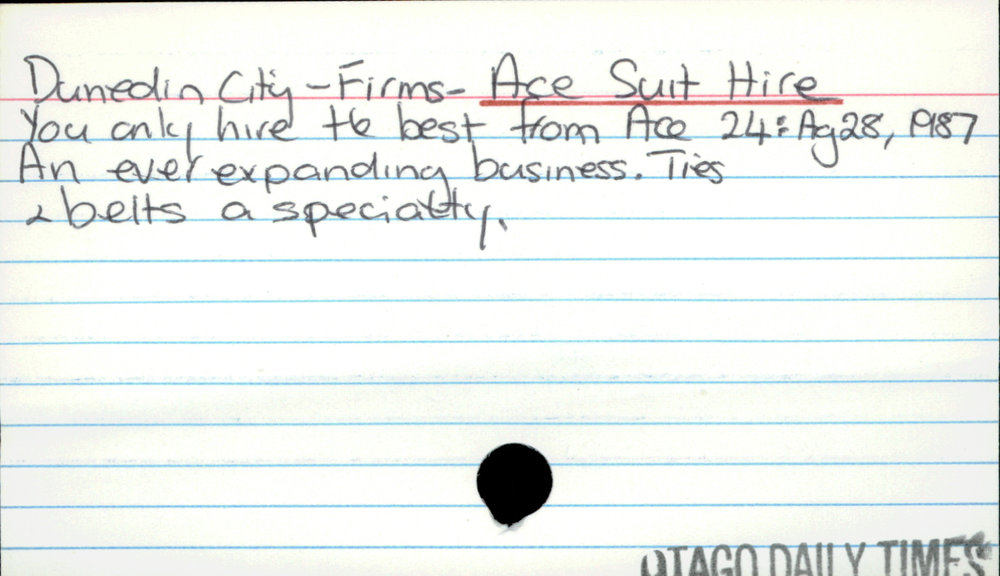 Dunedin City - Firms - Ace Suit Hire
You only hire the best from Ace 24: Ag28, P187
An ever expanding business. Ties
& belts a specialty.
OTAGO DAILY TIMES